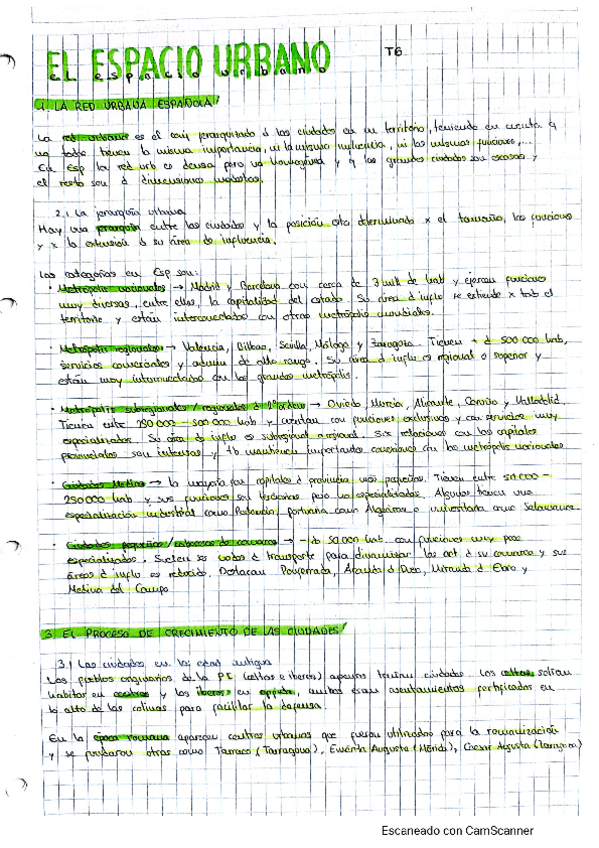 EL ESPACIO URBANO T6
el espacio urbano
1. LA RED URBANA ESPAÑOLA
La red urbana es el conj jerarquizado d las ciudades en un territorio, teniendo en cuenta q
no todas tienen la misma importancia, ni la misma influencia, ni las mismas funciones,...
En Esp la red urb es densa pero no homogénea y q las grandes ciudades son escasas y
el resto son d dimensiones modestas.
2.1 La jerarquía urbana
Hay una jerarquía entre las ciudades y la posición esta determinada x el tamaño, las funciones
y x la extensión d su área de influencia.
Las categorías en Esp son:
· Metrópolis nacionales → Madrid y Barcelona con cerca de 3 mill de hab y ejercen funciones
muy diversas, entre ellas, la capitalidad del estado. Su área d influ se extiende x tod el
territorio y están interconectadas con otras metrópolis mundiales.
· Metrópolis regionales → Valencia, Bilbao, Sevilla, Málaga y Zaragoza. Tienen + d 500 000 hab,
servicios comerciales y admin de alto rango. Su área d influ es regional o superior y
están muy interconectadas con las grandes metrópolis.
· Metrópolis subregionales / regionales d 2º orden → Oviedo, Murcia, Alicante, Coruña y Valladolid.
Tienen entre 250 000 - 500 000 hab y cuentan con funciones exclusivas y con servicios muy
especializados. Su área d influ es subregional o regional. Sus relaciones con las capitales
provinciales son intensas y tb mantienen importantes conexiones con las metrópolis nacionales
· Ciudades Medias → la mayoría son capitales d provincia más pequeñas. Tienen entre 50 000 -
250 000 hab y sus funciones son terciarias pero no especializadas. Algunas tienen una
especialización industrial como portuaria como Algeciras o universitaria como Salamanca.
· Ciudades pequeñas / cabeceras de comarca → - d 50 000 hab. con funciones muy poco
especializadas. Suelen ser nodos d transporte para dinamizar las act d su comarca y sus
áreas d influ es reducido. Destacan Ponferrada, Aranda d Duero, Miranda d Ebro y
Medina del Campo
3. EL PROCESO DE CRECIMIENTO DE LAS CIUDADES
3.1 Las ciudades en la edad antigua
Los pueblos originarios de la PI (celtas e iberos) apenas tenían ciudades. Los celtas solían
habitar en castros y los iberos en oppida, ambos eran asentamientos fortificados en
lo alto de las colinas para facilitar la defensa.
En la época romana aparecen centros urbanos que fueron utilizados para la romanización
y se fundaron otras como Tarraco (Tarragona), Emérita Augusta (Mérida), Caesar Augusta (Zaragoza)
Escaneado con CamScanner